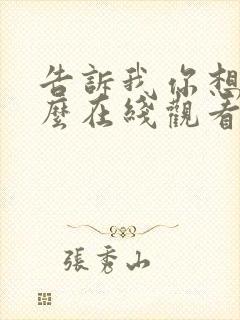 告訴我你想
麼在綫觀看
張秀山